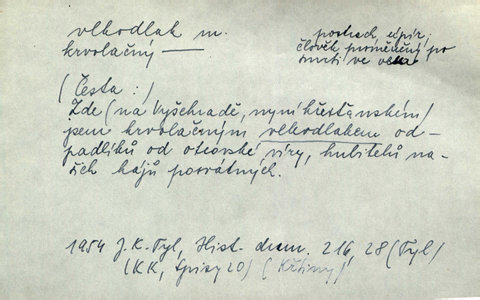 vlkodlak m.
krvolačný —
postrach, upír,
člověk proměněný po
smrti ve vlka
(Česta :)
Zde (na Vyšehradě, nyní křesťanském)
jsem krvolačným vlkodlakem od-
padlíků od otcovské víry, hubitelů na-
šich hájů posvátných.
1954 J. K. Tyl, Hist. dram. 216, 28 (Tyl)
(KK, Spisy 20)